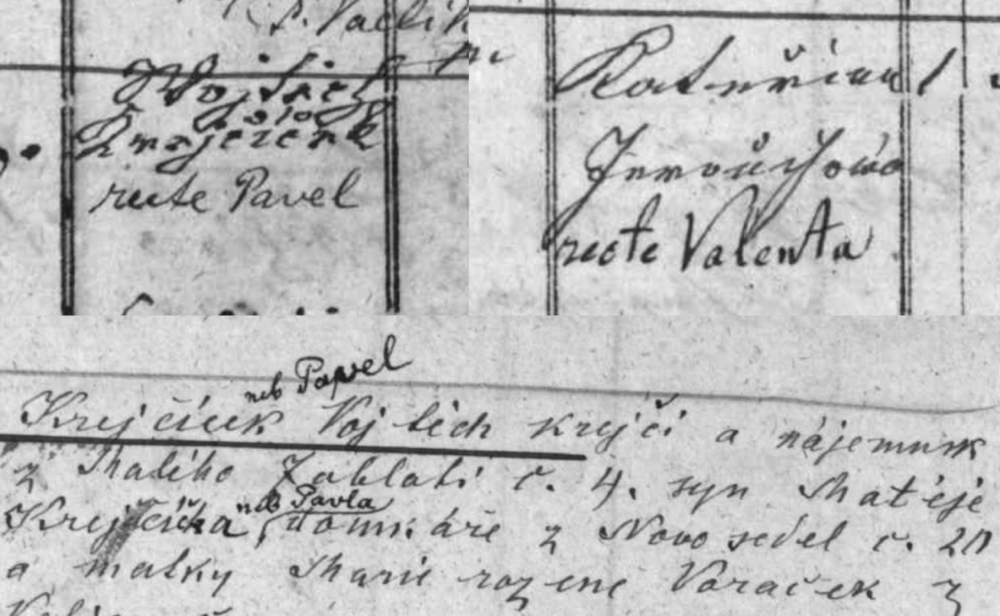 P. Václík
Vojtěch
Krejčíček
recte Pavel
Kateřina
Jarouchova
recte Valenta
neb Pavel
Krejčíček Vojtěch krejčí a nájemník
z Malého Zablatí č. 4. syn Matěje
neb Pavla
Krejčíčka domkáře z Novosedel č. 20
a matky Marie rozené Voráček z